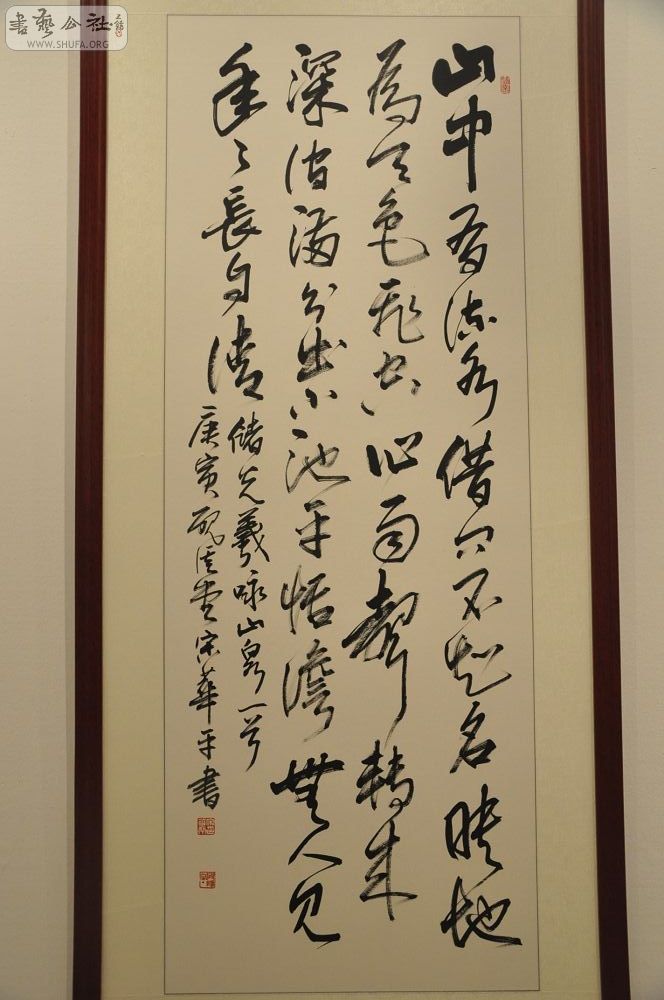 書藝公社
WWW.SHUFA.ORG
山中有流水借问不知名映地
為天色飛空作雨聲轉來
深涧满分出小池平恬澹無人見
年々長自清
儲光羲咏山泉一首
庚寅宋華平書